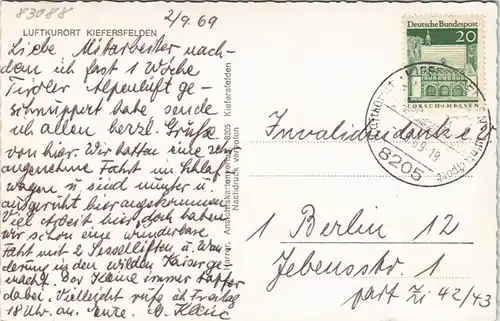 83088
2/9.69
LUFTKURORT KIEFERSFELDEN
Liebe Mitarbeiter nach-
dem ich fast 1 Woche
Tiroler Alpenluft ge-
schnuppert habe sende
ich allen herzl. Grüße
von hier. Wir hatten eine sehr
angenehme Fahrt im Schlaf
wagen u sind munter u.
ausgeruht hier angekommen.
Viel Arbeit hier, doch haben
wir schon eine wunderbare
Fahrt mit 2 Sesselliften u. Wan
derung in den wilden Kaiser ge
macht. Der Kleine immer tapfer
dabei. Vielleicht rufe ich Freitag
18 Uhr an. Eure
Ansichtskartenvertrieb 8205 Kiefersfelden
Nachdruck verboten
Deutsche Bundespost
20
LORSCH/HESSEN
8205
Invalidendank e.V.
1 Berlin 12
Jebensstr. 1
part Zi 42/43